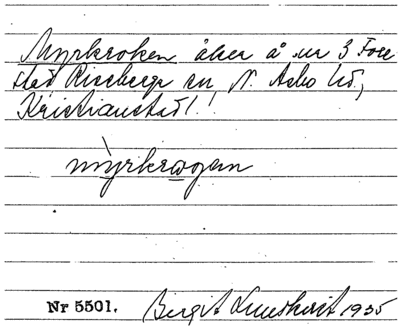 Myrkroken åker å nr 3 Fore
stad Riseberga sn N. Åsbo hd.,
Kristianstad l.
mỳrkrogen
Nr 5501. Birgit Lundkvist 1935